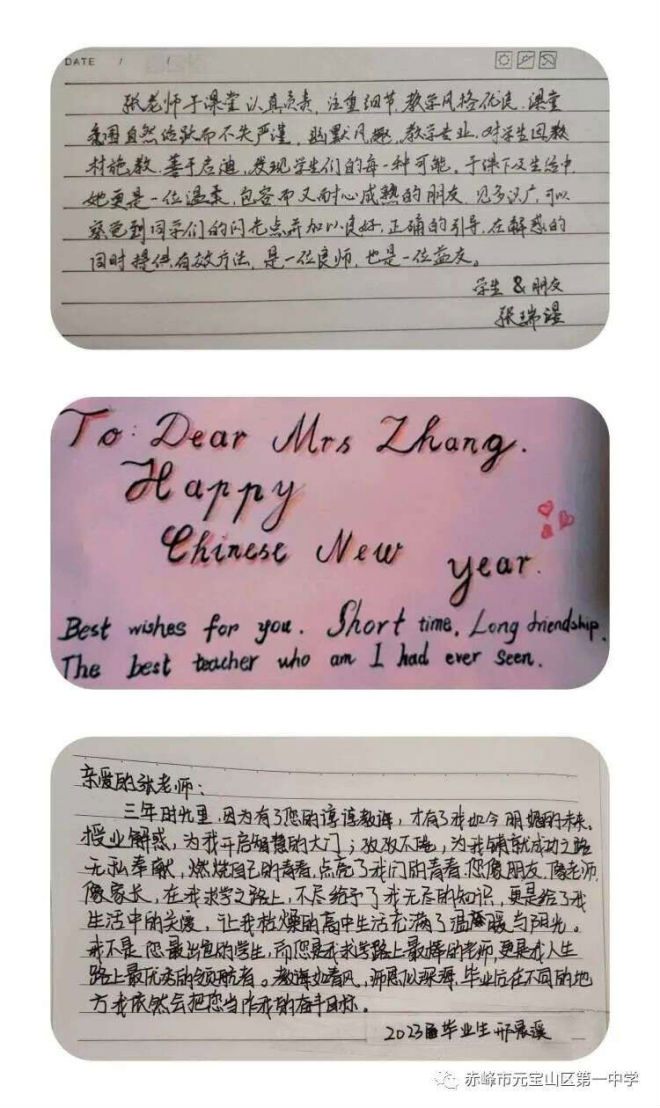 DATE / /
张老师于课堂认真负责，注重细节，教学风格优良，课堂
氛围自然轻跃而不失严谨，幽默风趣，教学专业，对学生因教
材施教，善于启迪，发现学生们的每一种可能。于课下及生活中，
她更是一位温柔，包容而又耐心成熟的朋友，见多识广，可以
察觉到同学们的闪光点并加以良好，正确的引导，在解惑的
同时提供有效方法，是一位良师，也是一位益友。
学生 & 朋友
张瑞
To: Dear Mrs Zhang.
Happy
Chinese New year.
Best wishes for you. Short time, Long friendship.
The best teacher who am I had ever seen.
亲爱的张老师：
三年时光里，因为有了您的谆谆教诲，才有了我如今明媚的未来。
授业解惑，为我开启智慧的大门；孜孜不倦，为我铺就成功之路
无私奉献，燃烧自己的青春，点亮了我们的青春。您像朋友，像老师，
像家长，在我求学之路上，不尽给予了我无尽的知识，更是给了我
生活中的关爱，让我枯燥的高中生活充满了温暖与阳光。
我不是您最出色的学生，而您是我求学路上最棒的老师，更是我人生
路上最优秀的领航者。教诲如春风，师恩似深海，毕业后在不同的地
方我依然会把您当作我的奋斗目标。
2023届毕业生 邢宸溪
赤峰市元宝山区第一中学